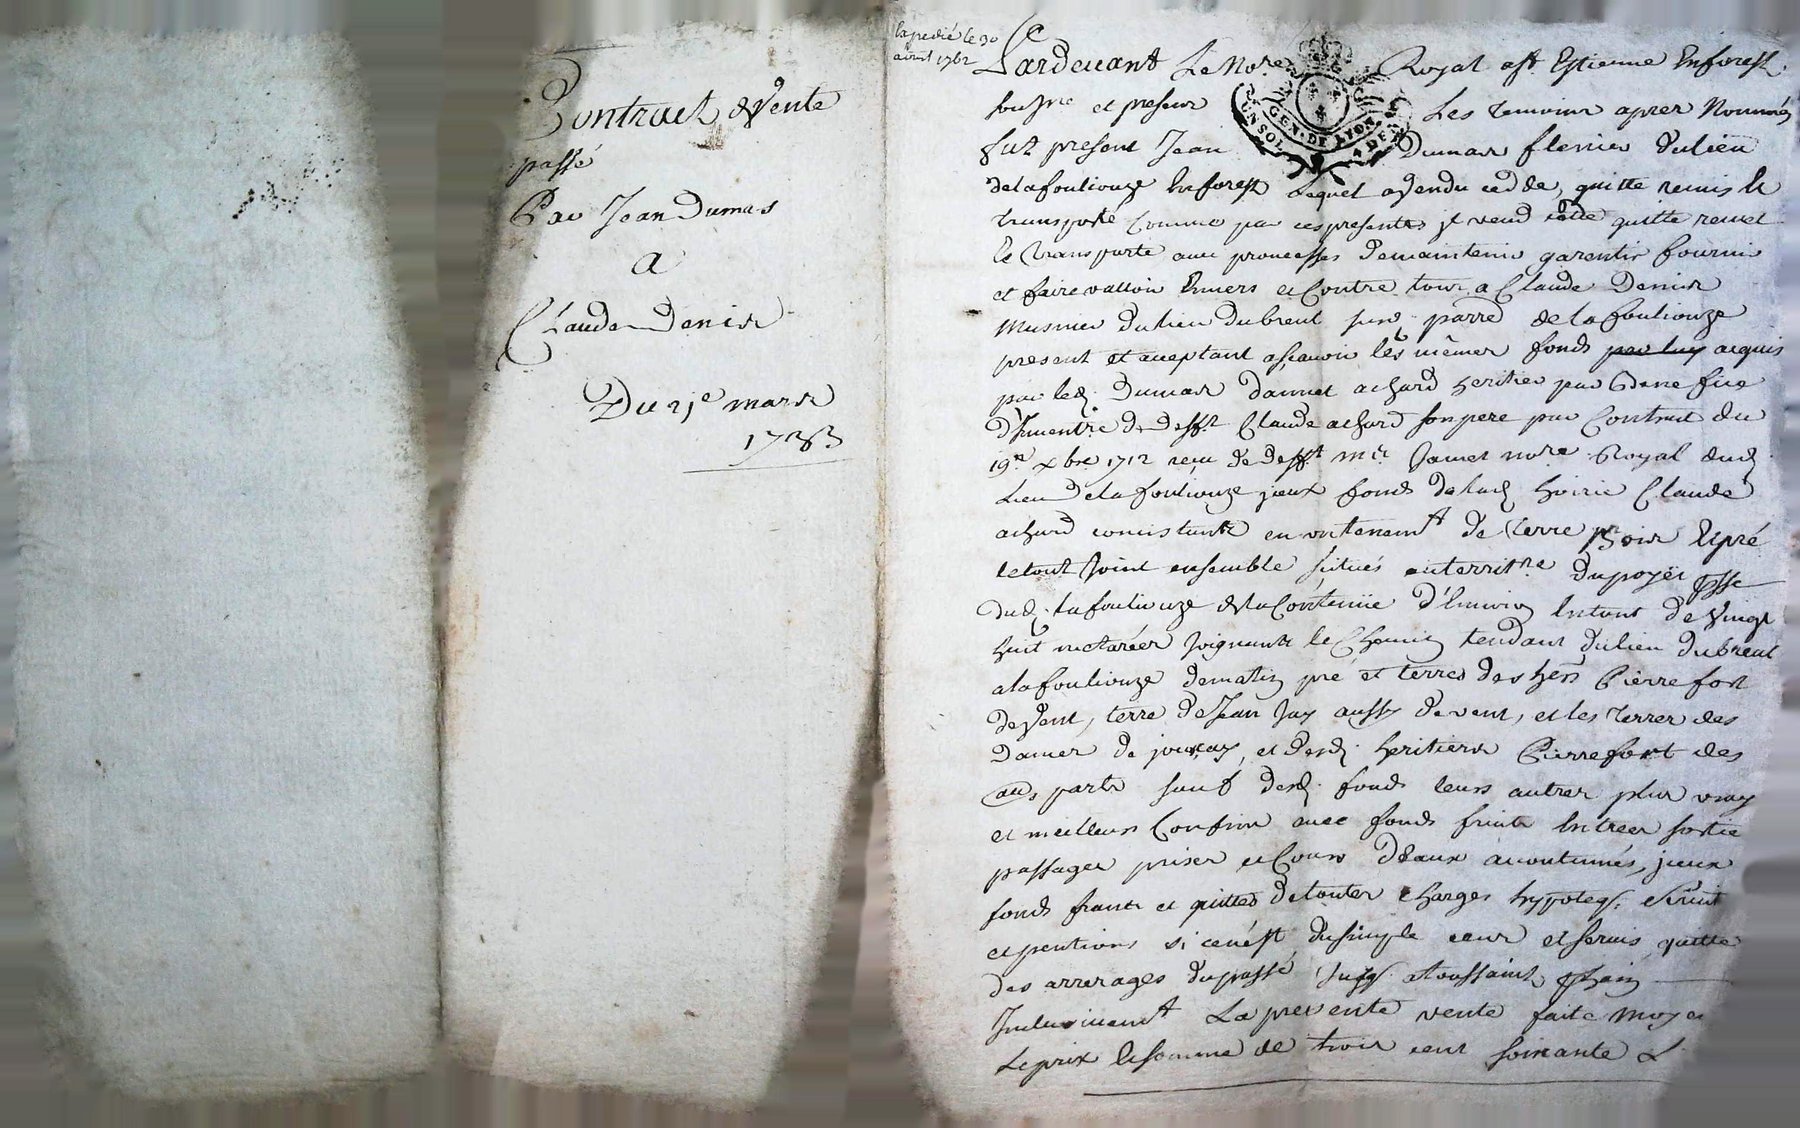 Contract de Vente
passé
Par Jean Dumas
A
Claude Denis
Du 21e mars
1733
Expedié le 30
avril 1762
Pardevant Le No.re Royal à St Estienne En forest
sous.né et presens Les temoins apres Nommés
GEN. DE LYON
fut present Jean Dumas du lieu
de la fouliouze En forest Lequel a Vendu cedde, quitte remis Et
transporté comme par ces presentes il vend cedde quitte remet
Et transporte avec promesses de maintenir garentir fournir
et faire valloir Envers et Contre tous a Claude Denis
Musnier du lieu du breul susd. parre de la fouliouze
present et acceptant asçavoir les mêmes fonds par luy acquis
par led. Dumas achard heritier par Benefice
D'Inventre. de deff.t Claude achard son pere par Contract du
19e xbre 1712 reçu de deff.t Me Jamet no.re Royal dud.
Lieu de la fouliouze iceux fonds de lad. hoirie Claude
achard consistants en un tenem.t de terre Et pré
le tout Joint ensemble situés au territ.re du poyet psse
dud. la fouliouze de la Contenüe d'Environ Entour de Vingt
huit meterées Joignants le Chemin tendant du lieu du breul
a la fouliouze de matin pré et terres des hers Pierrefort
de Vent, terre de Jean Jay aussy de vent, et les terres des
Dames de jourcey, et desd. heritiers Pierrefort des
au.s parts sauf desd. fonds leurs autres plus vray
et meilleurs Confins avec fonds fruits Entrées sortie
passages prises et Cours d'Eaux acoutumés, iceux
fonds francs et quittes de toutes charges hypoteq.
et pentions si ce n'est du simple cens et servis quitte
des arrerages du passé Jusq. a toussaints
Inclusivem.t La presente vente faite Moyen
Le prix Et somme de trois cent soixante L